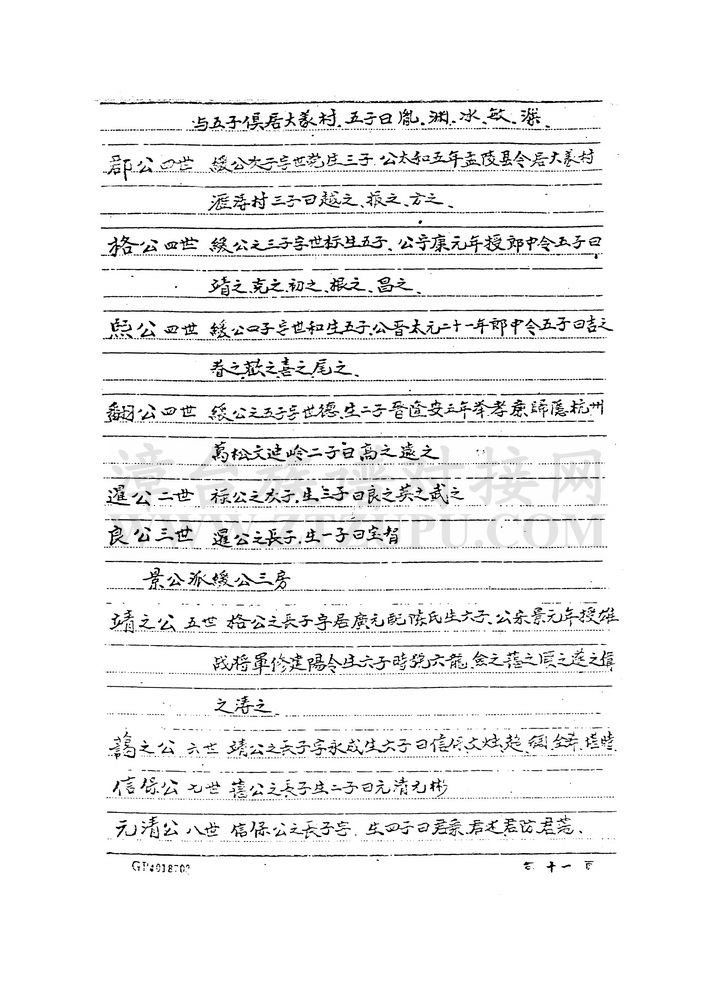 与五子俱居大義村.五子曰胤.渊.冰.敏.滐.
郡公四世 綬公次子字世范生三子.公太和五年孟陵县令居大義村
涯浔村三子曰越之、振之、方之、
格公四世 綬公之三子字世标生五子、公宁康元年授郎中令五子曰
靖之、克之、初之、根之、昌之、
熙公四世 綬公四子字世和生五子.公晋太元二十一年郎中令五子曰吉之
春之歡之喜之尾之、
翻公四世 綬公之五子字世德.生二子晉隆安三年举孝廉歸隱杭州
萬松文建岭二子曰高之遠之
暹公二世 禄公之次子.生三子曰良之英之武之
良公三世 暹公之長子.生一子曰宝智
景公派綬公三房
靖之公 五世 格公之長子字居廣元配陈氏生六子.公宋景元年授雄
战将軍修建陽令生六子時號六龍.
之濤之
六世 靖公之長子字永成生六子曰信保
信保公 七世 公之長子生二子曰元清元彬
元清公 八世 信保公之長子字. 生四子曰君
漳台族谱对接网
WWW.ZTZUPU.COM
第十一頁